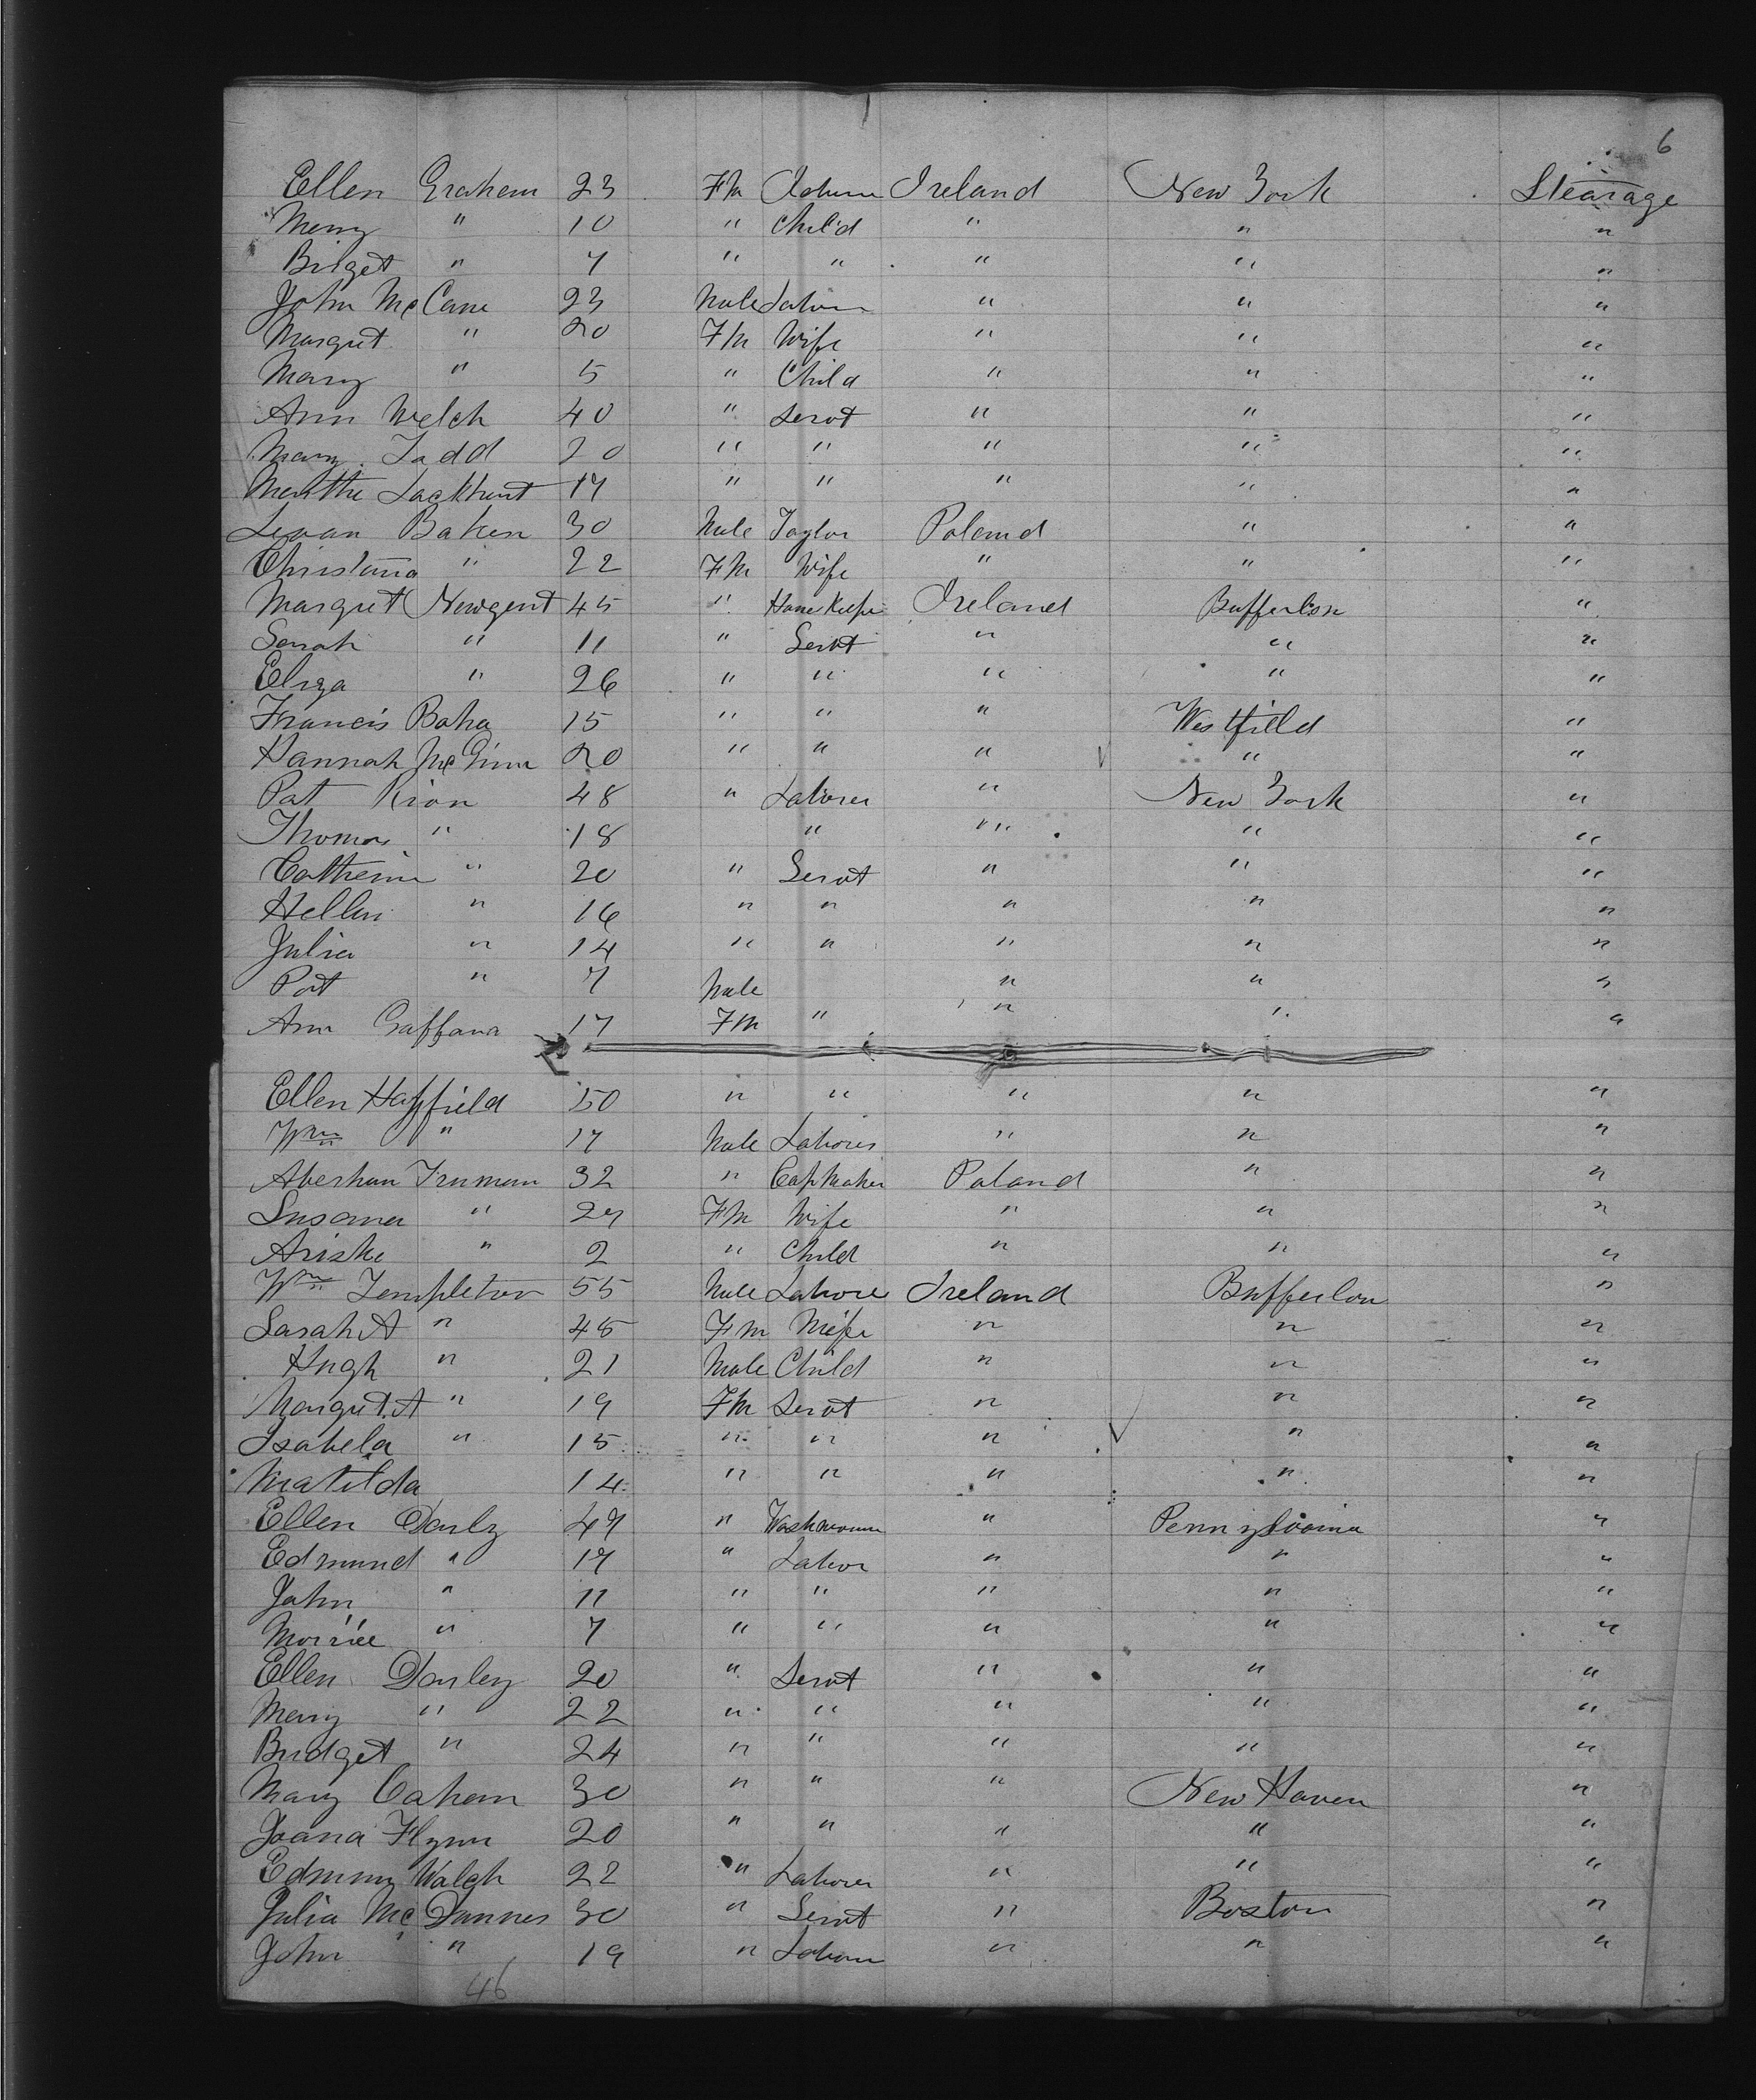 6
Ellen Graham 23 Fm Ireland New York Stearage
Mery " 10 " Child " " "
Briget " 7 " " " " "
John McCane 23 Male Labor " " "
Margret " 20 Fm Wife " " "
Mary " 5 " Child " " "
Ann Welch 40 " Servt " " "
Mary Tadd 20 " " " " "
Marthe Lackhunt 17 " " " " "
Baken 30 Male Taylor Poland " "
Christana " 22 Fm Wife " " "
Margret Newgent 45 " HouseKeepr Ireland Bufferlon "
Sarah " 11 " Servt " " "
Eliza " 26 " " " " "
Francis Baha 15 " " " Westfield "
Hannah McGinn 20 " " " " "
Pat Rion 48 " Laborer " New York "
Thomas " 18 " " " "
Catherin " 20 " Servt " " "
Hellen " 16 " " " " "
Julia " 14 " " " " "
Pat " 7 Male " " "
Ann Gaffana 17 Fm " " " "
Ellen Hayfield 50 " " " " "
Wm " 17 Male Laborer " " "
Abraham Truman 32 " Cap Maker Poland " "
Susana " 27 Fm Wife " " "
Ariske " 2 " Child " " "
Wm Templeton 55 Male Labore Ireland Bufferlon "
Sarah A " 45 Fm Wife " " "
Hugh " 21 Male Child " " "
Margret A " 19 Fm Servt " " "
Isabela " 15 " " " " "
Matilda 14 " " " " "
Ellen Darly 47 " Washwoman " Pennylvania "
Edmund " 17 " Labor " " "
John " 11 " " " " "
" 7 " " " " "
Ellen Darley 20 " Servt " " "
Mary " 22 " " " " "
Bridget " 24 " " " " "
Mary Cahan 30 " " " New Haven "
Joana Flynn 20 " " " " "
Edmuny Walch 22 " Laborer " " "
Julia Mc Dannes 30 " Servt " Boston "
John " 19 " Laborer " " "
46